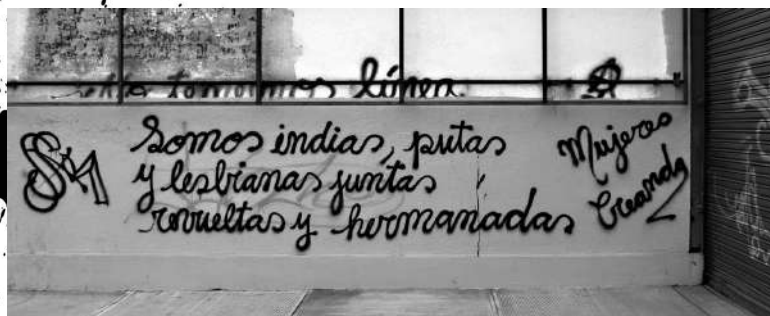 línea.
Somos indias, putas
y lesbianas juntas
revueltas y hermanadas
Mujeres
Creando